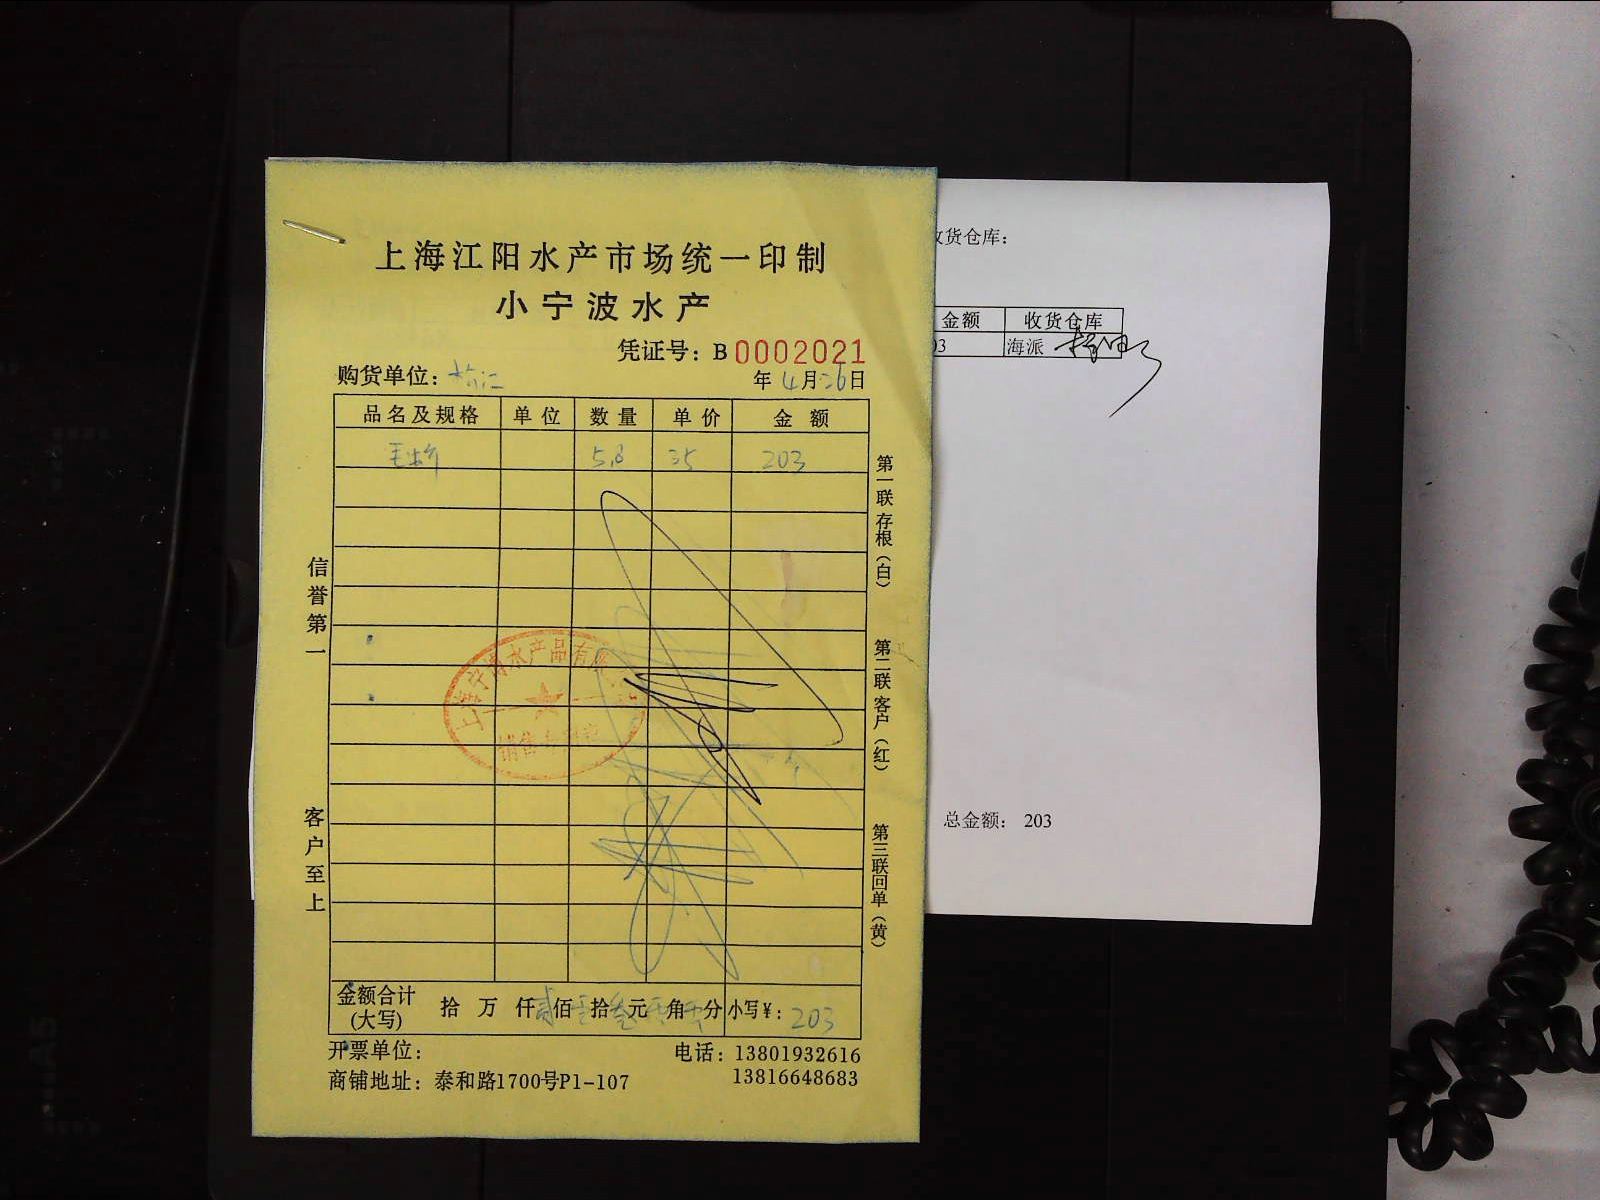 上海江阳水产市场统一印制
小宁波水产
凭证号：B 0002021
购货单位：
年 4月26日
品名及规格 单位 数量 单价 金额
5.8 35 203
信誉第一
客户至上
第一联存根（白）
第二联客户（红）
第三联回单（黄）
销售专用章
金额合计(大写) 拾 万 仟贰佰零拾叁元零角零分 小写¥：203
开票单位：
电话：13801932616
商铺地址：泰和路1700号P1-107
13816648683
货仓库：
金额 收货仓库
03 海派
总金额： 203